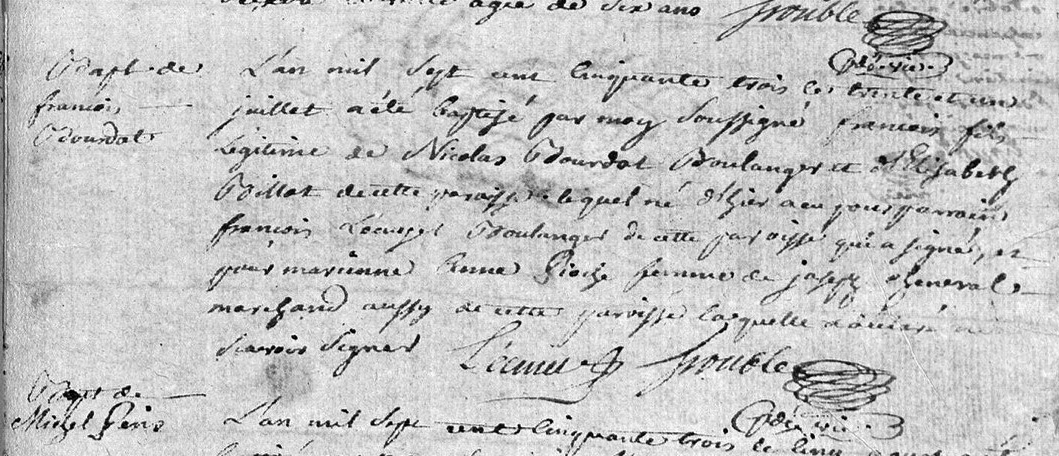 agée de six ans Trouble
Bapt. de
francois
Bourdot
L'an mil sept cent cinquante trois le trente et un
juillet a été baptisé par moy soussigné francois fils
Légitime de Nicolas Bourdot Boulanger et d'Elisabeth
Billot de cette paroisse lequel né d'hier a eu pour parrain
francois Boulanger de cette paroisse qui a signé, et
pour marainne Anne femme de joseph
marchand aussy de cette paroisse laquelle a déclaré ne
scavoir signer Trouble
Bapt de
Michel
L'an mil sept cent cinquante trois le cinq